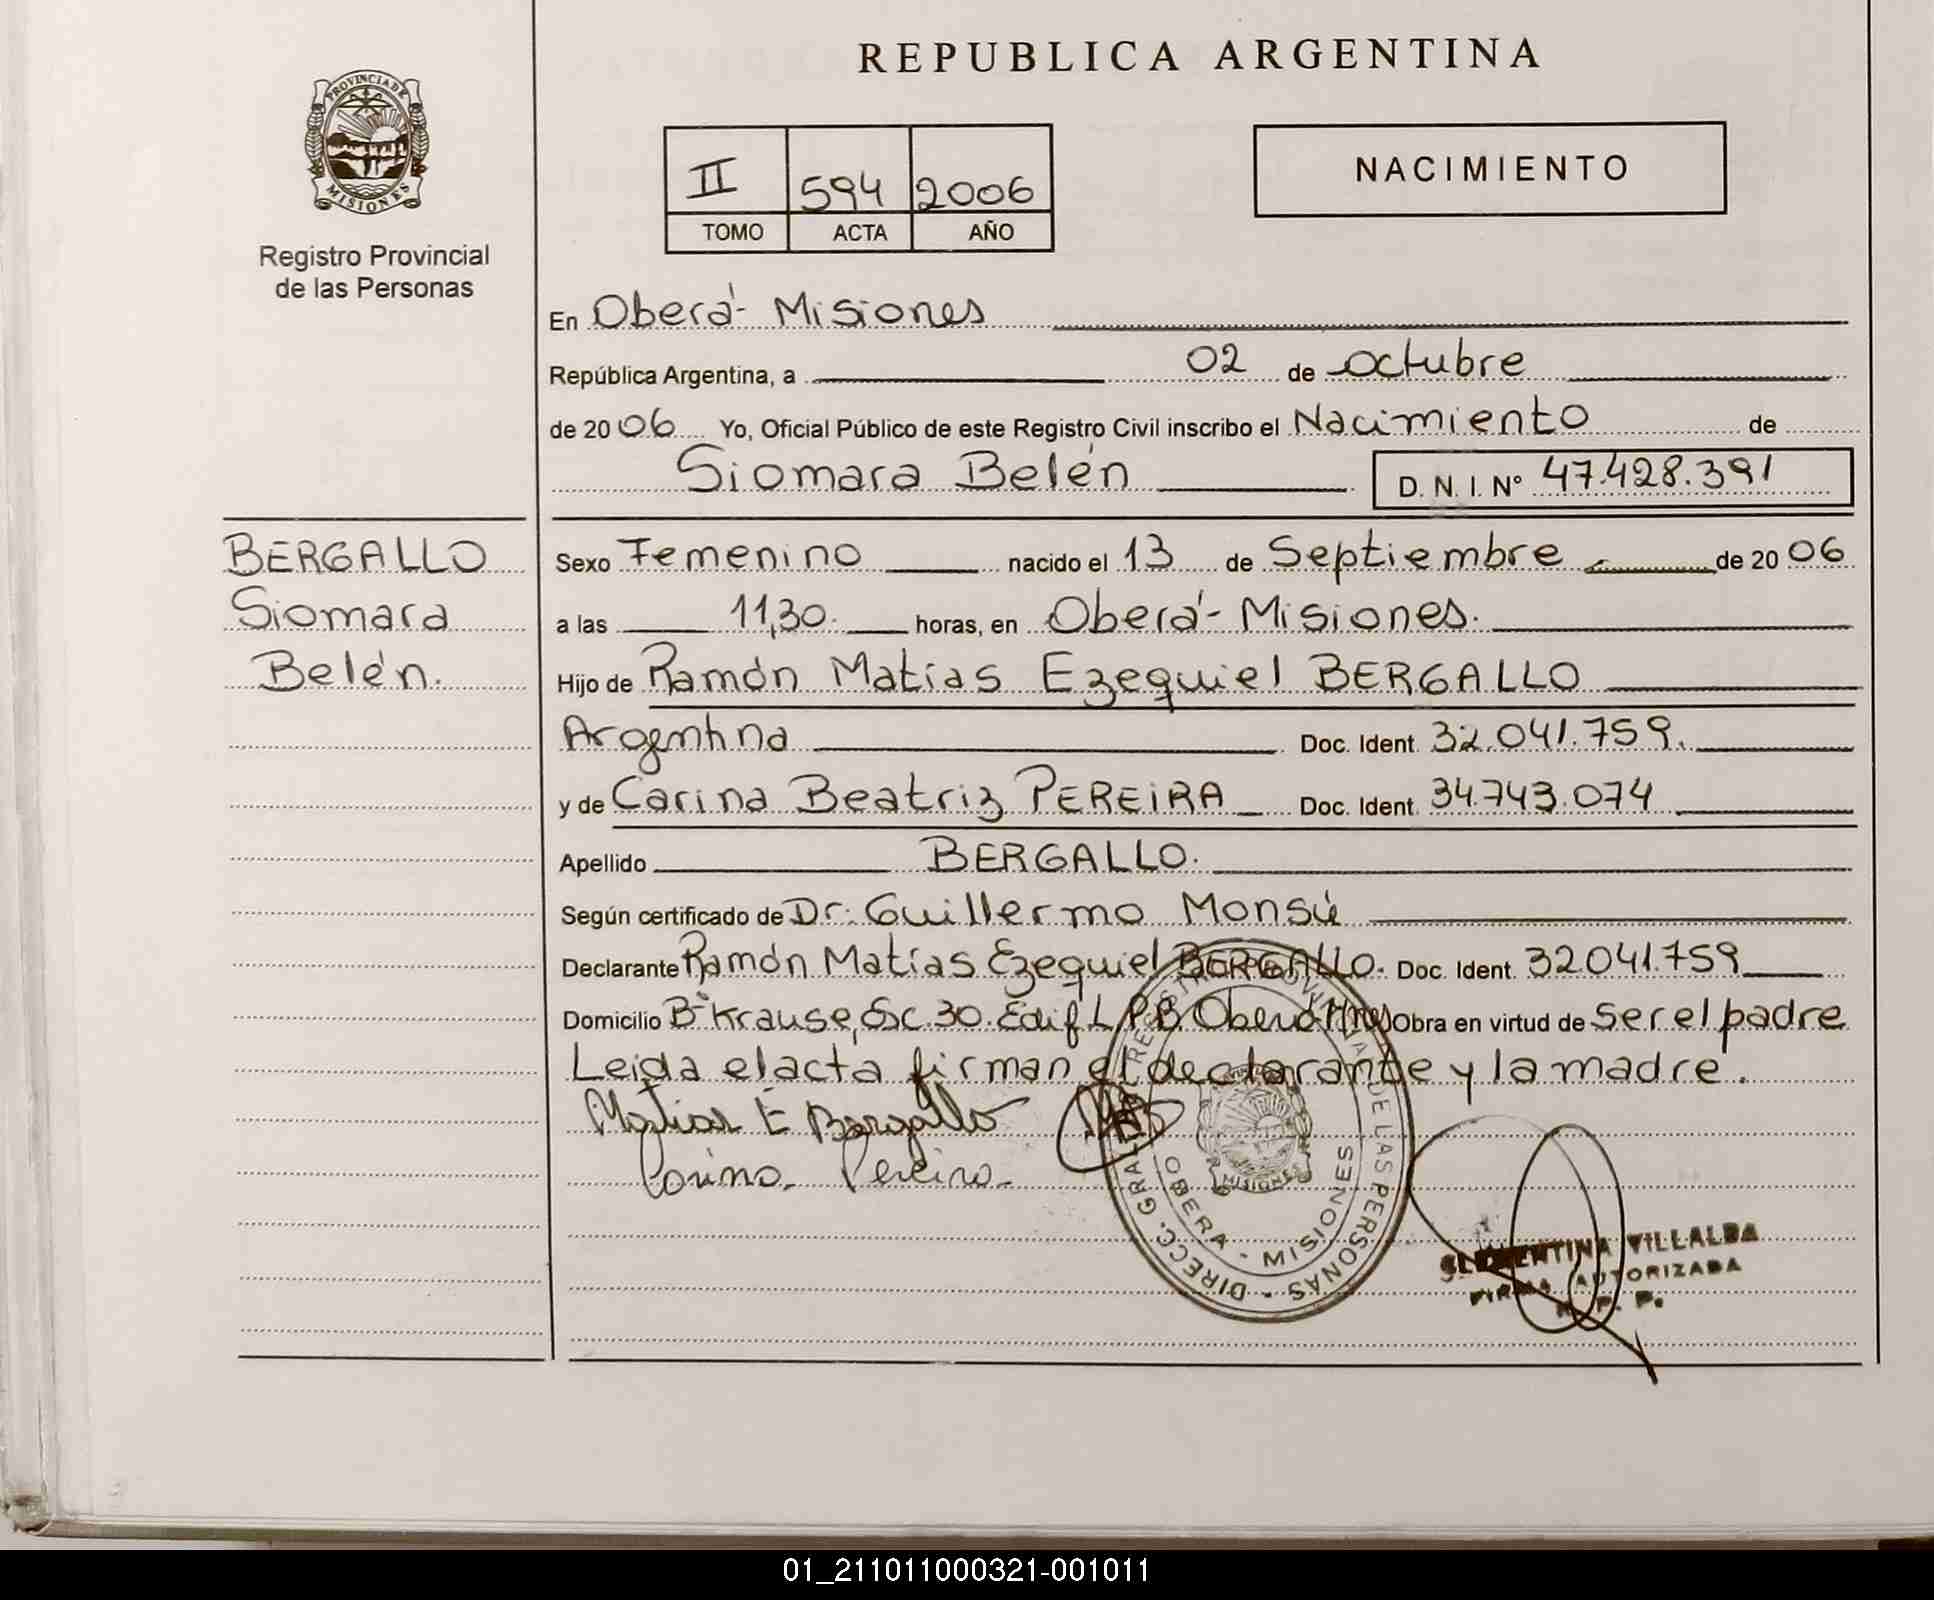 REPUBLICA ARGENTINA
PROVINCIA DE
MISIONES
Registro Provincial
de las Personas
II 594 2006
TOMO ACTA AÑO
NACIMIENTO
En Oberá - Misiones
República Argentina, a 02 de octubre
de 2006 Yo, Oficial Público de este Registro Civil inscribo el Nacimiento de
Siomara Belén D. N. I. Nº 47.428.391
BERGALLO
Siomara
Belén.
Sexo Femenino nacido el 13 de Septiembre de 2006
a las 11,30. horas, en Oberá - Misiones.
Hijo de Ramón Matías Ezequiel BERGALLO
Argentina Doc. Ident. 32.041.759.
y de Carina Beatriz PEREIRA Doc. Ident. 34.743.074
Apellido BERGALLO.
Según certificado de Dr. Guillermo Monsú
Declarante Ramón Matías Ezequiel BERGALLO. Doc. Ident. 32041.759
Domicilio Bº Krause, Esc. 30. Edif L, P.B. Oberá Mnes Obra en virtud de ser el padre
Leida el acta firman el declarante y la madre.
Matias E Bergallo
Carina Pereira
DIRECC. GRAL. REGISTRO PROVINCIAL DE LAS PERSONAS
OBERA - MISIONES
MISIONES
CLEMENTINA VILLALBA
FIRMA AUTORIZADA
R. P. P.
01_211011000321-001011